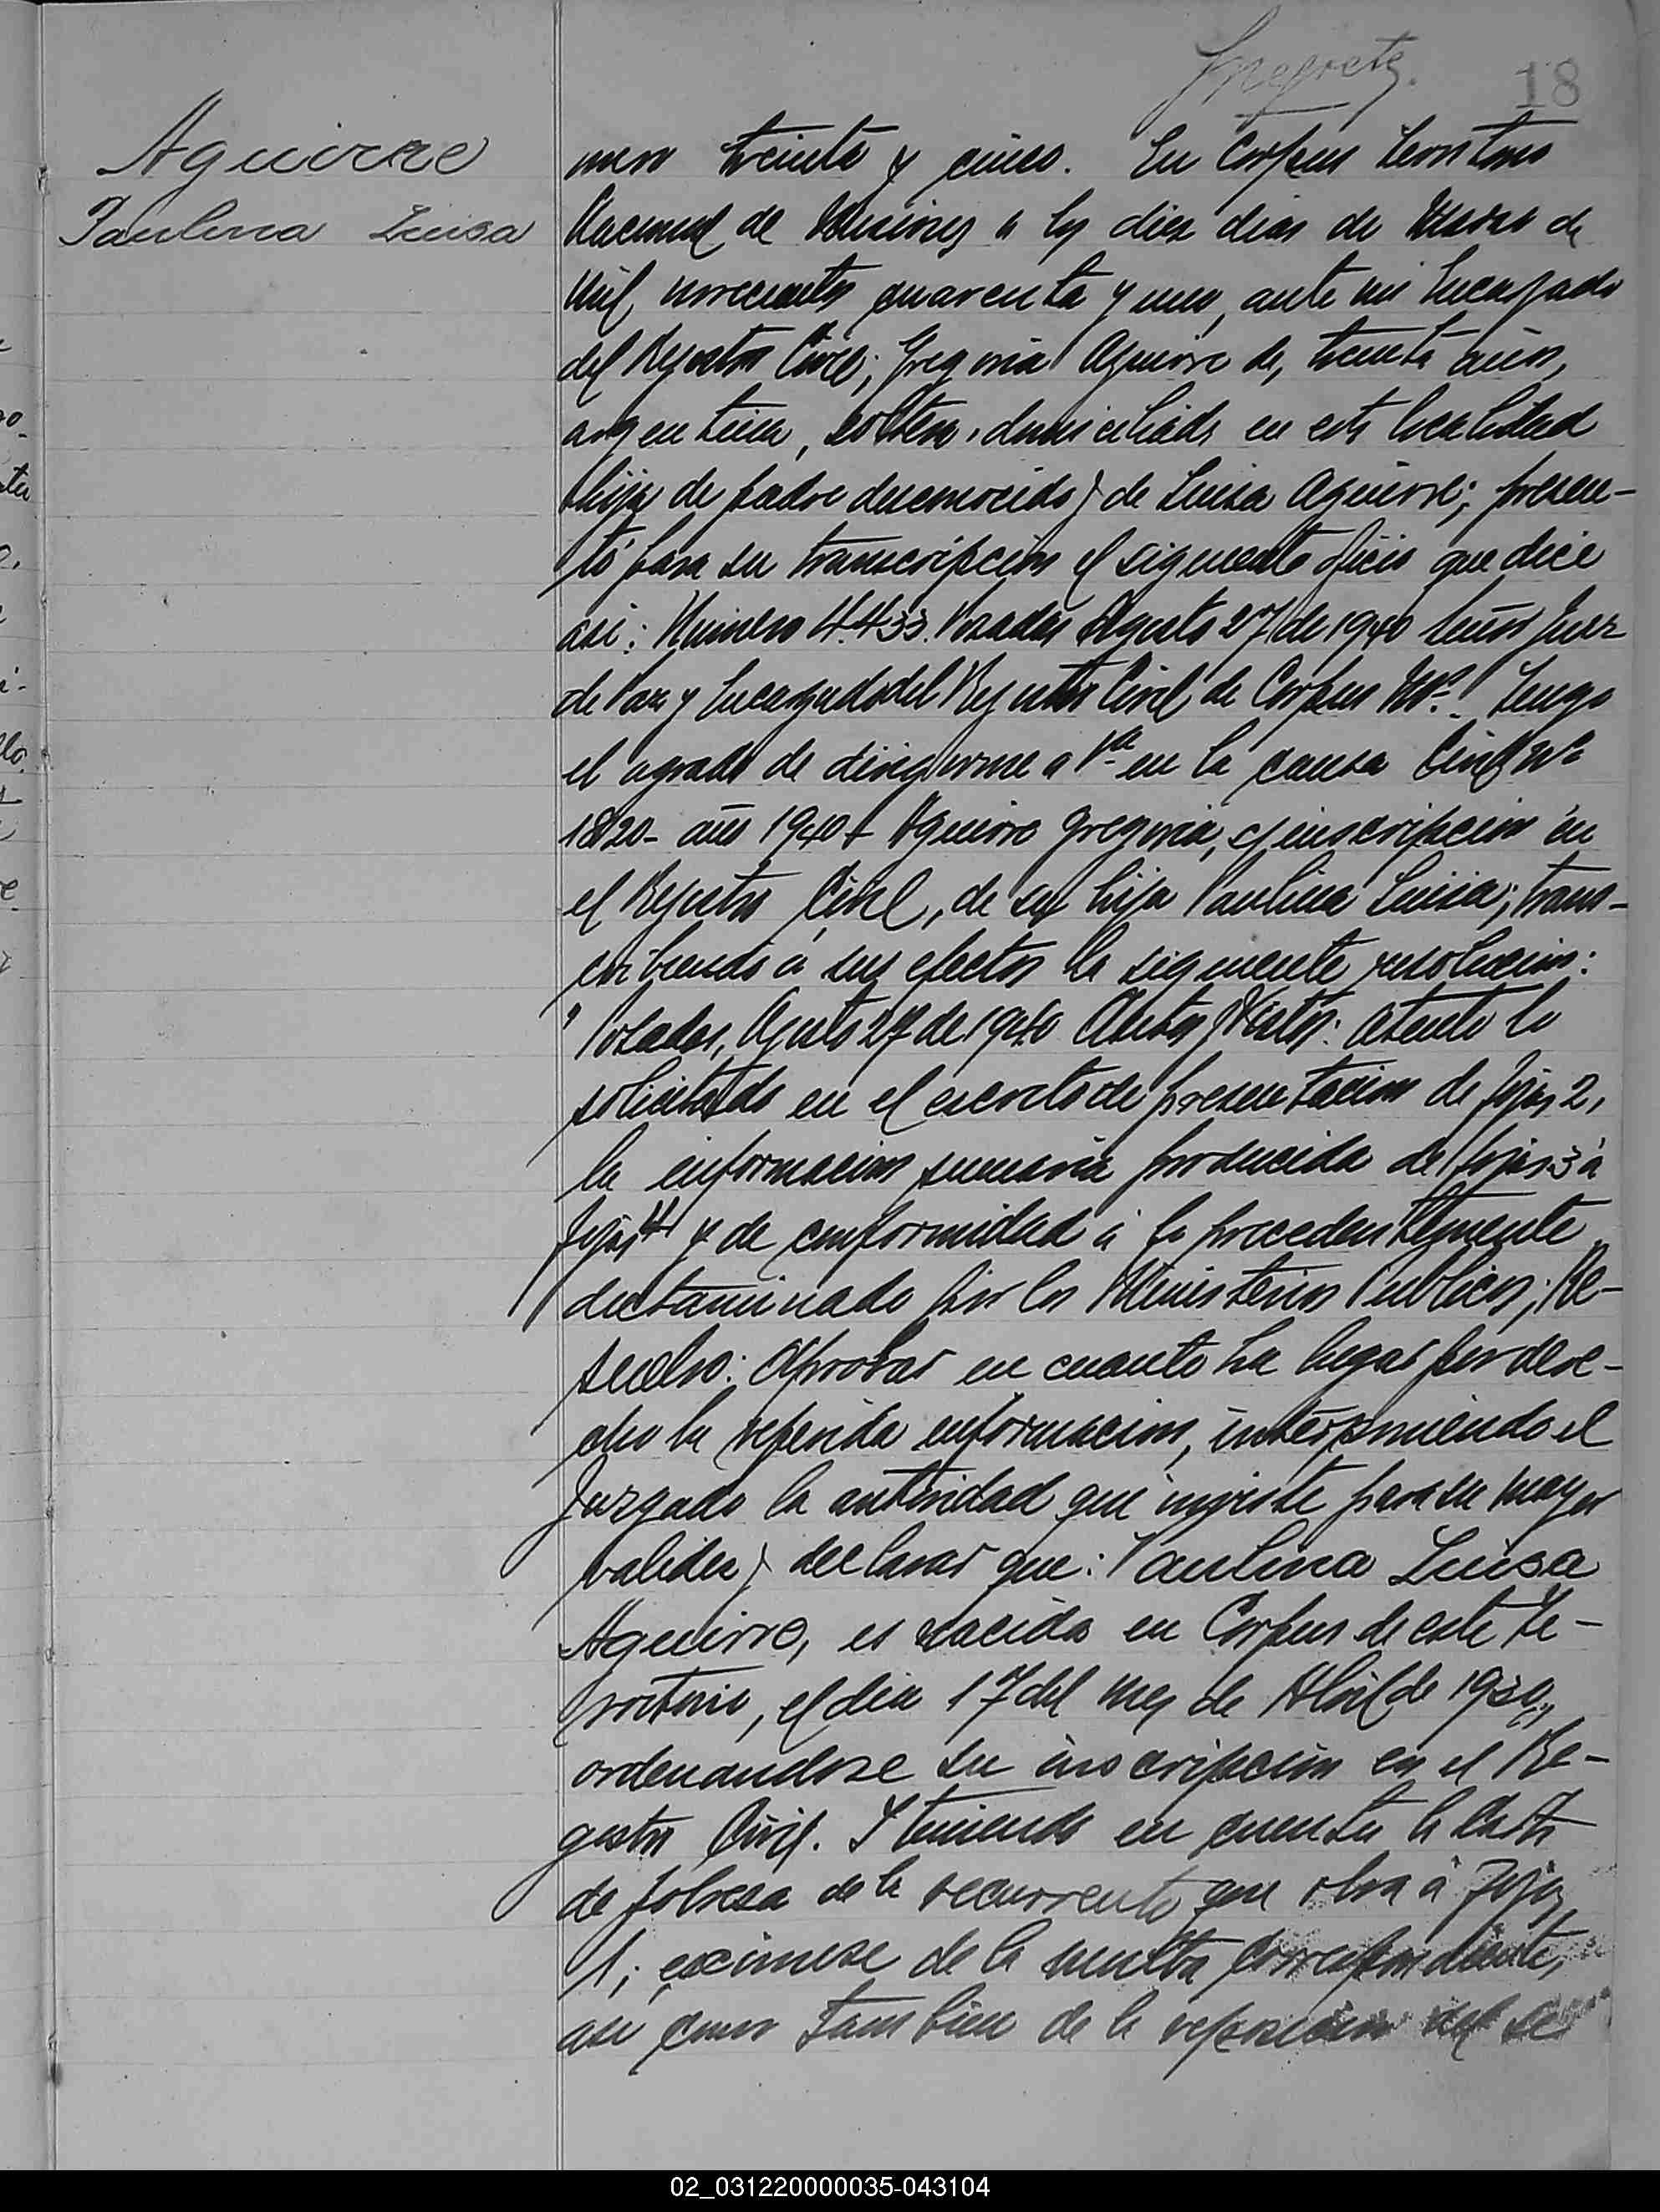 18
Aguirre
Paulina Luisa
mero treinta y cinco. En Corpus Territorio
Nacional de Misiones a los diez dias de Marzo de
mil novecientos cuarenta y uno, ante mi Encargado
del Registro Civil; Gregoria Aguirre de, treinta años,
argentina, soltera, domiciliada en esta localidad
hija de padre desconocido y de Luisa Aguirre; presen-
tó para su transcripcion el siguiente oficio que dice
asi: Numero 4.433. Posadas Agosto 27 de 1940 Señor Juez
de Paz y Encargado del Registro Civil de Corpus Tengo
el agrado de dirigirme a Vd. en la causa Civil Nº
1820- año 1940 Aguirre Gregoria, s/ inscripcion en
el Registro Civil, de su hija Paulina Luisa; trans-
cribiendo á sus efectos la siguiente resolucion:
" Posadas, Agosto 27 de 1940 Autos y Vistos: Atento lo
solicitado en el escrito de presentacion de fojas 2,
la informacion sumaria producida de fojas 3 á
fojas 4 y de conformidad á lo precedentemente
dictaminado por los Ministerios Publicos; Re-
suelvo: Aprobar en cuanto ha lugar por dere-
cho la referida informacion, interponiendo el
Juzgado la autoridad que inviste para su mayor
validez y declarar que: Paulina Luisa
Aguirre, es nacida en Corpus de este te-
rritorio, el dia 17 del mes de Abril de
ordenandose su inscripcion en el Re-
gistro Civil. Y teniendo en cuenta la Carta
de pobreza de la recurrente que obra á fojas
1; eximese de la multa correspondiente,
asi como tambien de la reposicion del se
02_031220000035-043104